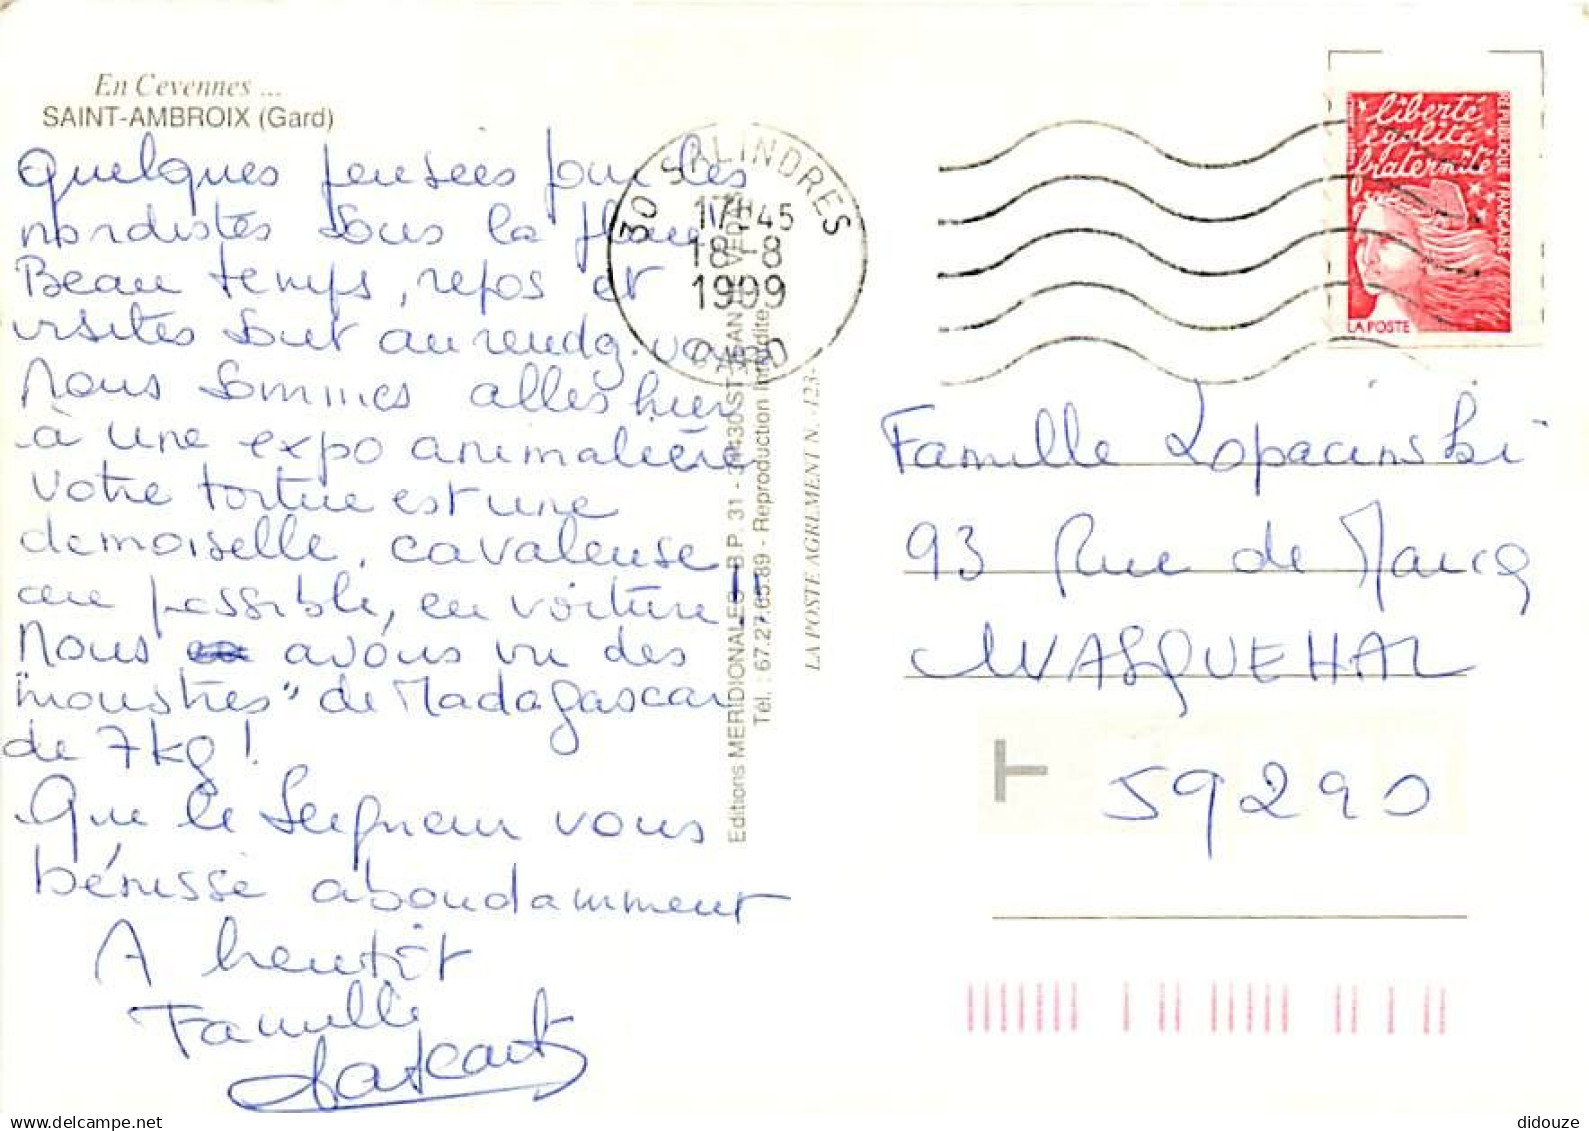 En Cevennes ...
SAINT-AMBROIX (Gard)
Quelques pensées pour les
nordistes sous la pluie
Beau temps, repos et
visites sont au rendez-vous
Nous sommes allés hier
à une expo animalière
Votre tortue est une
demoiselle, cavaleuse
au possible, en voiture!!
Nous avons vu des
"monstres" de Madagascar
de 7kg!
Que le Seigneur vous
bénisse abondamment
A bientôt
Famille
30 SALINDRES
17H45
18-8
1999
GARD
Editions MERIDIONALES - B.P. 31 - 34430 ST JEAN DE VEDAS
Tél. : 67.27.65.89 - Reproduction Interdite
LA POSTE AGREMENT N. 123-
liberté
égalité
fraternité
REPUBLIQUE FRANÇAISE
LA POSTE
Famille Lopacinski
93 Rue de Marcq
WASQUEHAL
T
59290
didouze